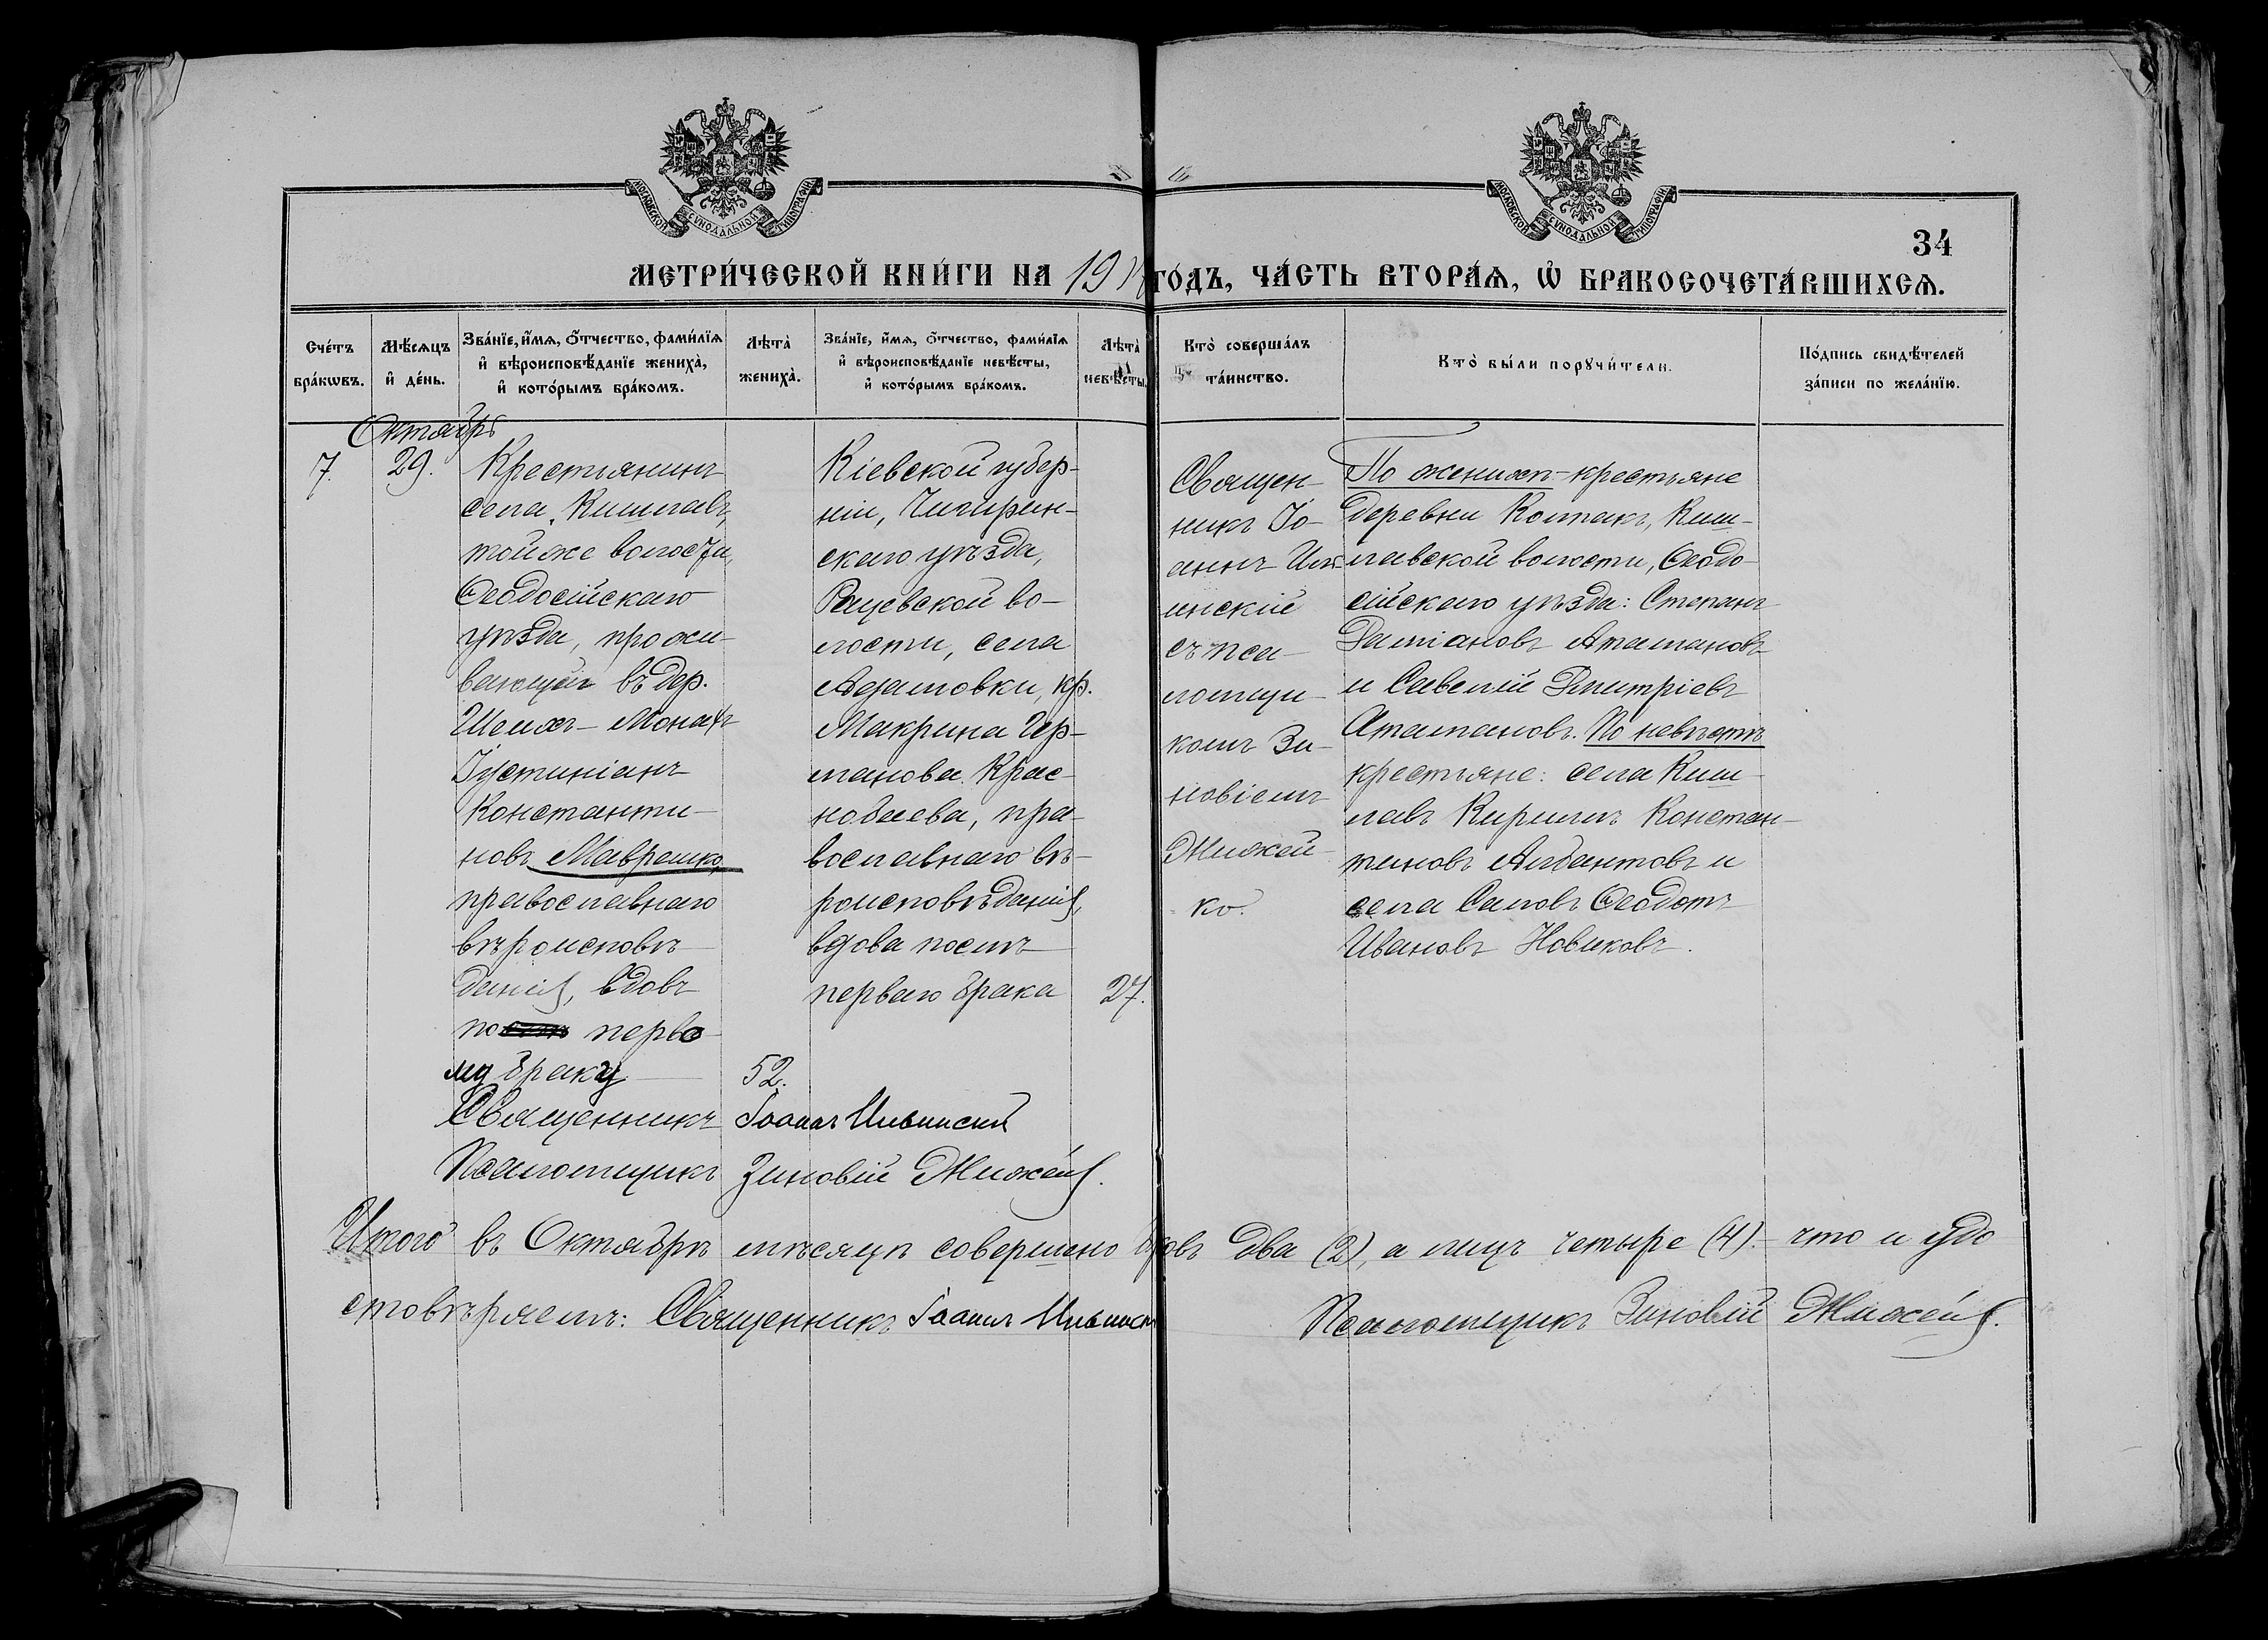 МОСКОВСКОЙ СѴНОДАЛЬНОЙ ТИПОГРАФІИ
МОСКОВСКОЙ СѴНОДАЛЬНОЙ ТИПОГРАФІИ
34
МЕТРИ́ЧЕСКОЙ КНИ́ГИ НА 19 ГО́ДЪ, ЧА́СТЬ ВТОРА́Ѧ, Ѽ БРАКОСОЧЕТА́ВШИХСѦ.
Сче́тъ бра́кѡвъ.
Мѣ́сяцъ и҆ де́нь.
Зва́нїе, и҆́мѧ, ѻ҆́тчество, фами́лїѧ и҆ вѣроисповѣ́данїе жениха̀, и҆ кото́рымъ бра́комъ.
Лѣта̀ жениха̀.
Зва́нїе, и҆́мѧ, ѻ҆́тчество, фами́лїѧ и҆ вѣроисповѣ́данїе невѣ́сты, и҆ кото́рымъ бра́комъ.
Лѣта̀ невѣ́сты.
Кто̀ соверша́лъ та́инство.
Кто̀ бы́ли порꙋчи́тели.
По́дпись свидѣ́телей за́писи по жела́нїю.
Октябрь
7.
29.
Крестьянинъ
села Кишлавъ,
той же волости,
Ѳеодосійскаго
уѣзда, прожи-
вающій въ дер.
Шейхъ-Монахъ
Іустиніанъ
Константи-
новъ Маврешко,
православнаго
вѣроисповѣ-
данія, вдовъ
по перво-
му браку
52.
Кіевской губер-
ніи, Чигирин-
скаго уѣзда,
Рацевской во-
лости, села
Адамовки, кр.
Макрина Гер-
манова Крас-
нобаева, пра-
вославнаго вѣ-
роисповѣданія,
вдова послѣ
перваго брака
27.
Священ-
никъ Іо-
аннъ Иль-
инскій
съ пса-
ломщи-
комъ Зи-
новіемъ
Жижей-
ко.
По женихѣ - крестьяне
деревни Колпакъ, Киш-
лавской волости, Ѳеодо-
сійскаго уѣзда: Степанъ
Даміановъ Атамановъ
и Савелій Дмитріевъ
Атамановъ. По невѣстѣ
крестьяне: села Киш-
лавъ Кириллъ Констан-
тиновъ Арбантовъ и
села Саловъ Ѳеодотъ
Ивановъ Новиковъ.
Священникъ Іоаннъ Ильинскій
Псаломщикъ Зиновій
Итого въ Октябрѣ мѣсяцѣ совершено два (2), а лицъ четыре (4). - что и удо
стовѣряемъ: Священникъ Іоаннъ Ильинск Псаломщикъ Зиновій